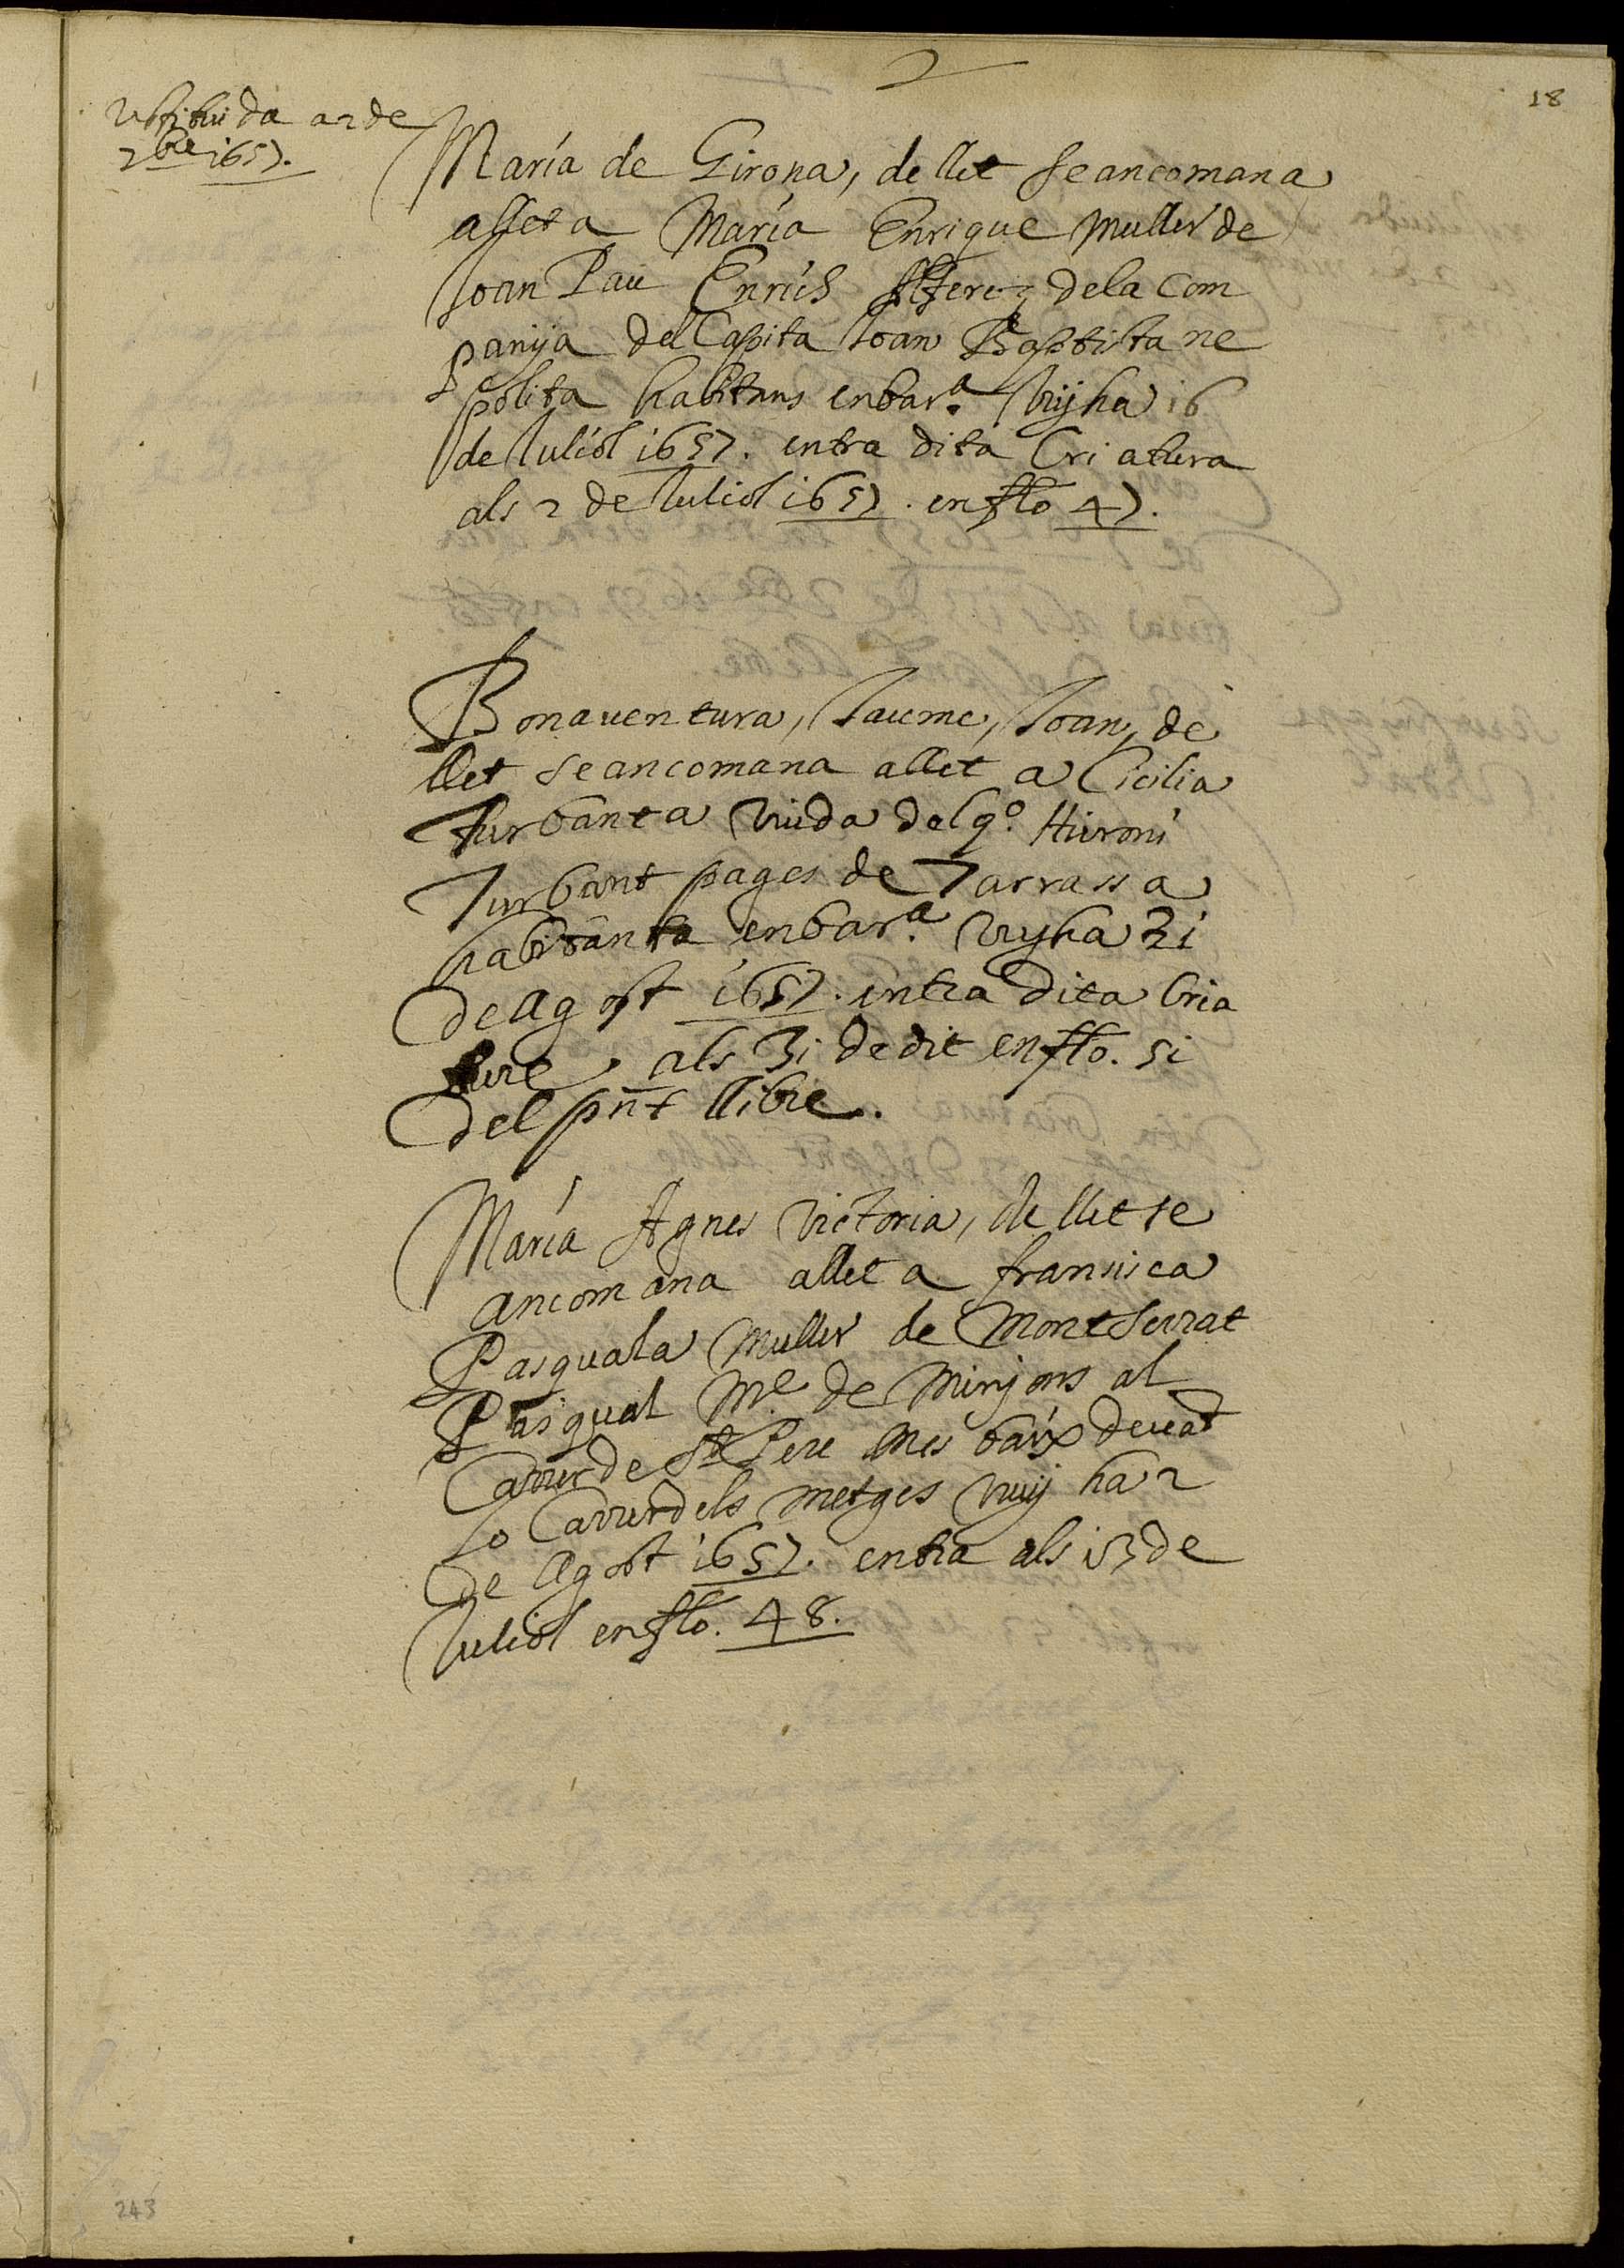 18
Restituida a 2 de
7bre 1657.
María de Girona, de llet se ancomana
allet a María Enrique muller de
Joan Pau Enrich Alferez de la Com
panÿa del Capita Joan Baptista ne
polita habitans en bar.ª Vuÿ ha 16
de Juliol 1657. entra dita Criatura
als 2 de Juliol 1657. en ffº 47.
Bonaventura, Jaume, Joan, de
llet se ancomana allet a Cicilia
Turbanta viuda del qº. Hieroni
Turbant pages de Tarrassa
habitanta en bar.ª Vuy ha 31
de Agost 1657. entra dita Cria
ture als 31 de dit en ffº. 51
del pnt llibre.
María Agnes Victoria, de llet se
ancomana allet a fransisca
Pasquala muller de Montserrat
Pasqual Me. de minyons al
Carrer de St Pere mes baix devant
lo Carrer dels metges vuÿ ha 2
de Agost 1657. entra als 13 de
Juliol en ffº. 48.
243